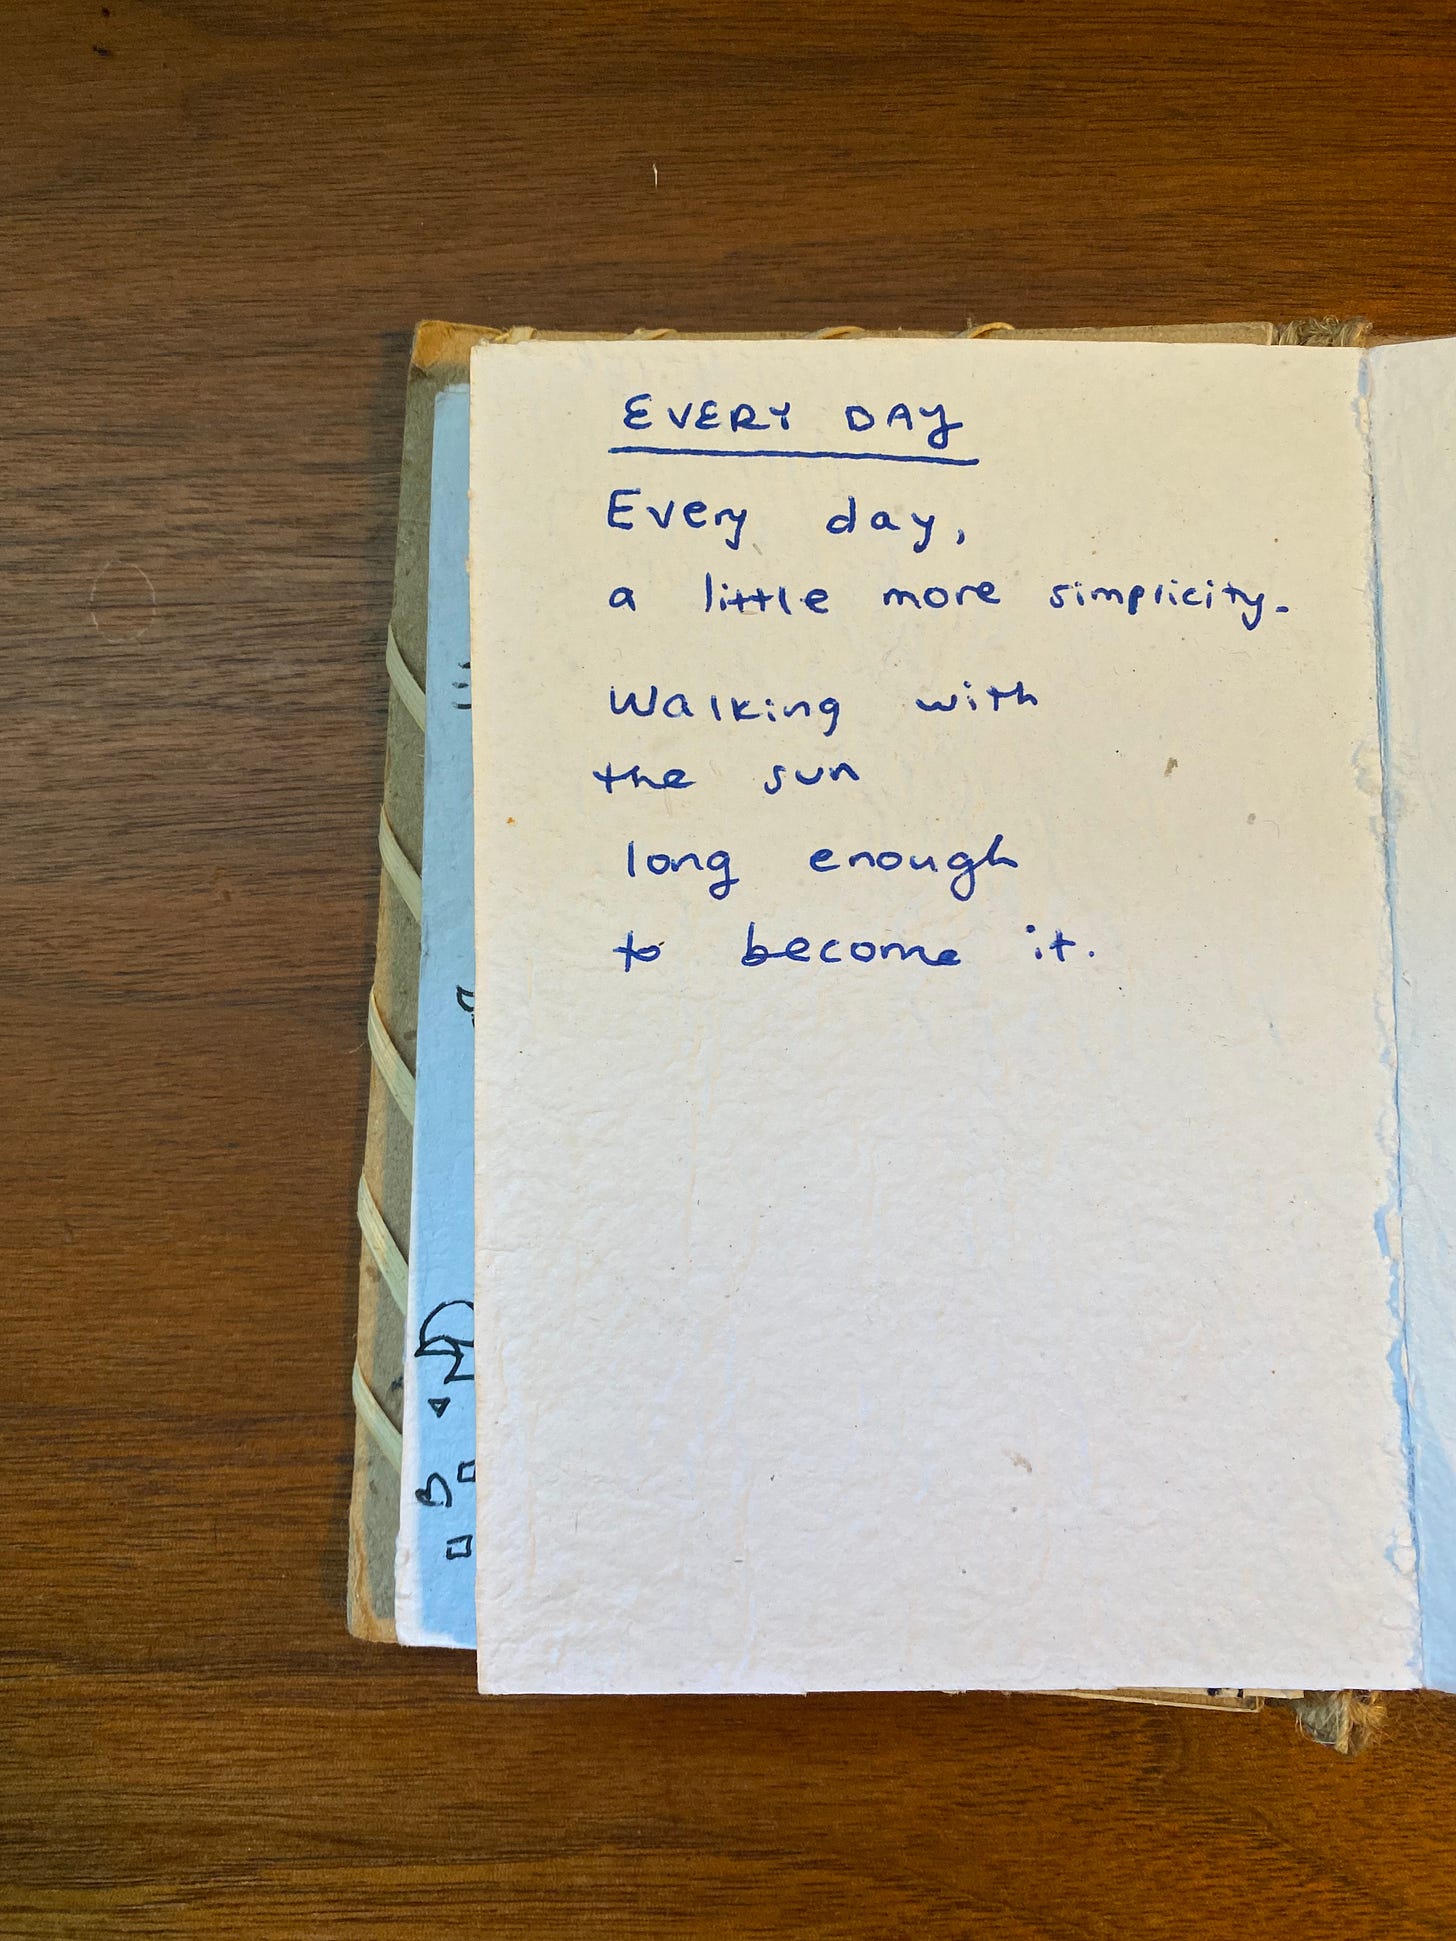 EVERY DAY
Every day,
a little more simplicity.
Walking with
the sun
long enough
to become it.